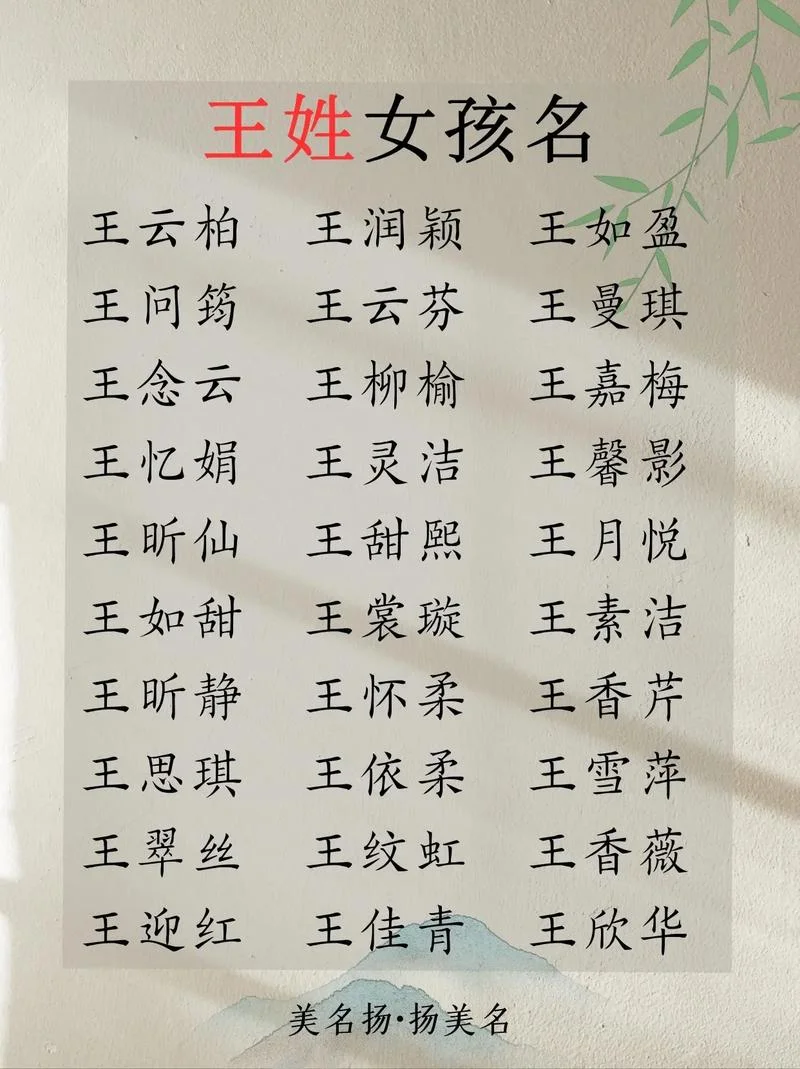 王姓女孩名
王云柏 王润颖 王如盈
王问筠 王云芬 王曼琪
王念云 王柳榆 王嘉梅
王忆娟 王灵洁 王馨影
王昕仙 王甜熙 王月悦
王如甜 王裳璇 王素洁
王昕静 王怀柔 王香芹
王思琪 王依柔 王雪萍
王翠丝 王纹虹 王香薇
王迎红 王佳青 王欣华
美名扬·扬美名